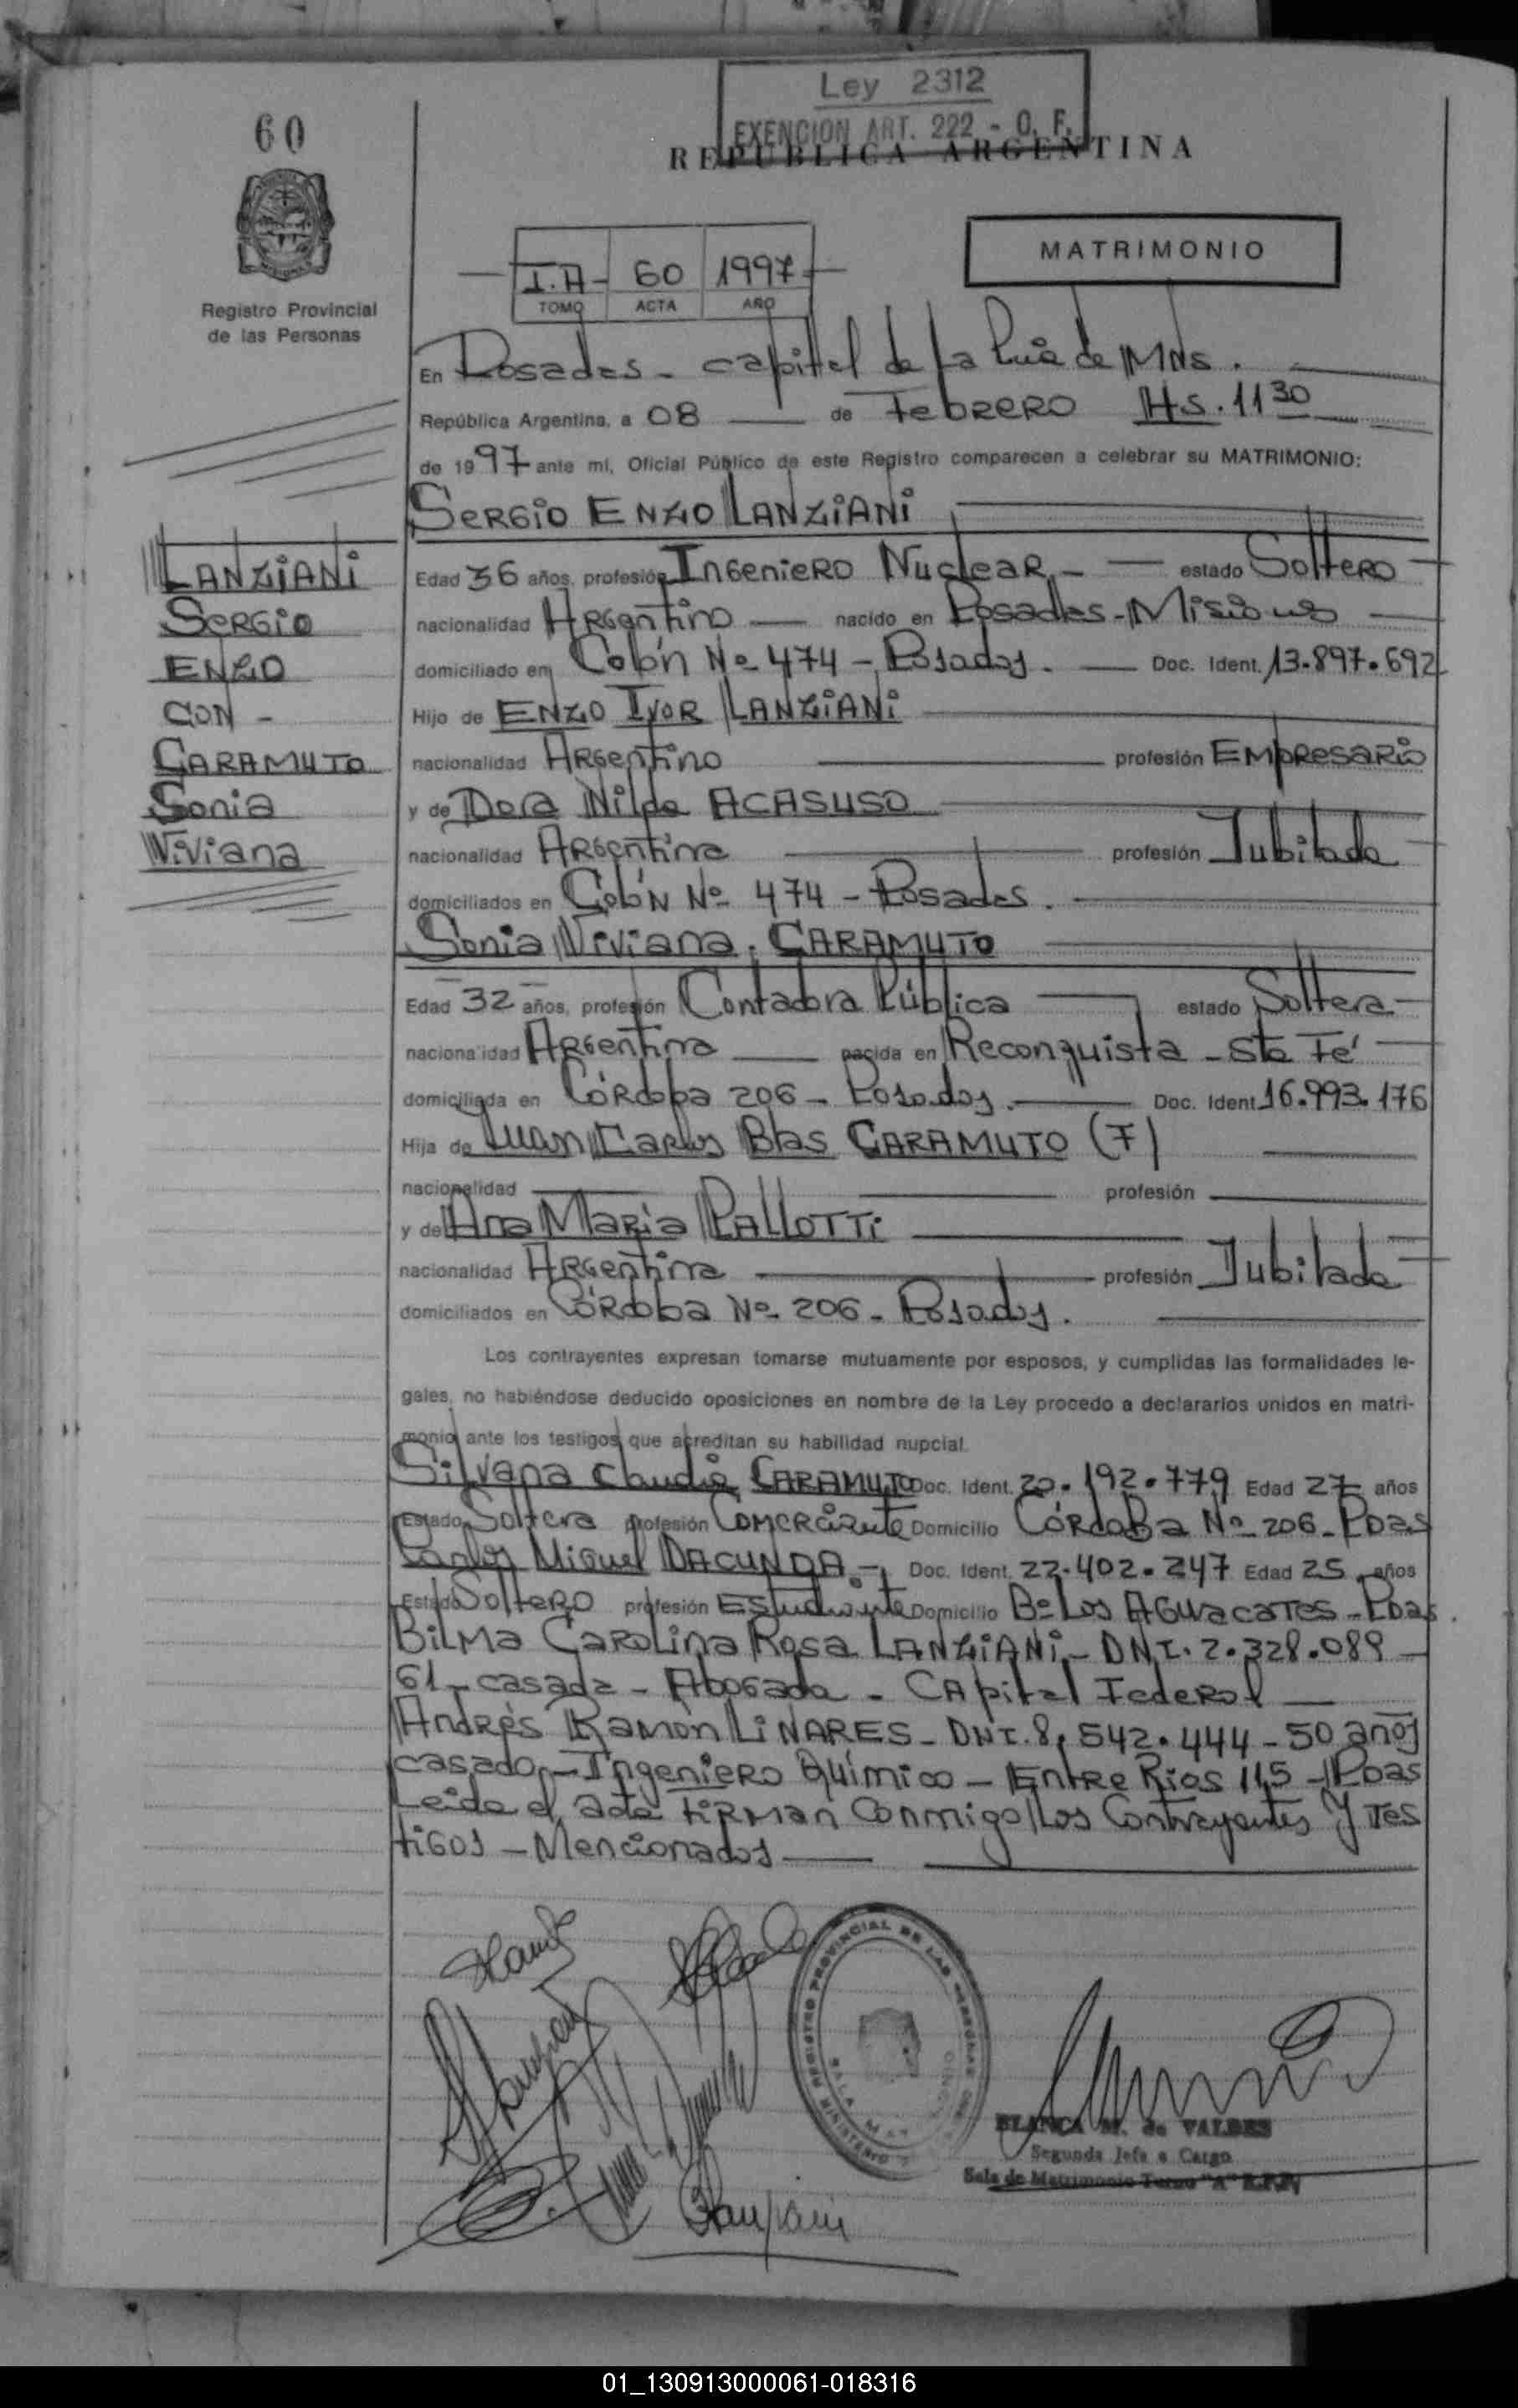 Ley 2312
EXENCION ART. 222 - O. F.
REPUBLICA ARGENTINA
60
MATRIMONIO
I.A- 60 1997
TOMO ACTA AÑO
Registro Provincial
de las Personas
En Posadas - capital de la Pcia de Mns.
República Argentina, a 08 de Febrero Hs. 11 30
de 1997 ante mi, Oficial Público de este Registro comparecen a celebrar su MATRIMONIO:
Sergio Enzo LANZIANI
LANZIANI
Sergio
ENZO
CON -
CARAMUTO
Sonia
Viviana
Edad 36 años, profesión Ingeniero Nuclear - estado Soltero
nacionalidad Argentino nacido en Posadas - Misiones
domiciliado en Colón Nº 474 - Posadas. Doc. Ident. 13.897.692
Hijo de ENZO IVOR LANZIANI
nacionalidad Argentino profesión Empresario
y de Dora Nilda ACASUSO
nacionalidad Argentina profesión Jubilada
domiciliados en Colón Nº 474 - Posadas.
Sonia Viviana CARAMUTO
Edad 32 años, profesión Contadora Pública estado Soltera
nacionalidad Argentina nacida en Reconquista - Sta Fé
domiciliada en Córdoba 206 - Posadas. Doc. Ident. 16.993.176
Hija de Juan Carlos Blas CARAMUTO (F)
nacionalidad profesión
y de Ana María PALLOTTI
nacionalidad Argentina profesión Jubilada
domiciliados en Córdoba Nº 206 - Posadas.
Los contrayentes expresan tomarse mutuamente por esposos, y cumplidas las formalidades le-
gales, no habiéndose deducido oposiciones en nombre de la Ley procedo a declararlos unidos en matri-
monio ante los testigos que acreditan su habilidad nupcial
Silvana Claudia CARAMUTO Doc. Ident. 20.192.779 Edad 27 años
Estado Soltera profesión Comerciante Domicilio Córdoba Nº 206 - Pdas
Carlos Miguel DACUNDA - Doc. Ident. 22.402.247 Edad 25 años
Estado Soltero profesión Estudiante Domicilio Bº Los Aguacates - Pdas.
Bilma Carolina Rosa LANZIANI - DNI. 2.328.089
61 - casada - Abogada - Capital Federal
Andrés Ramón LINARES - DNI. 8.542.444 - 50 años
casado - Ingeniero Químico - Entre Rios 115 - Pdas
Leida el acta Firman Conmigo Los Contrayentes y Tes
tigos - Mencionados
REGISTRO PROVINCIAL DE LAS PERSONAS
MINISTERIO
BLANCA M. de VALDES
Segunda Jefe a Cargo
Sala de Matrimonio Turno "A" R.P.P.
01_130913000061-018316